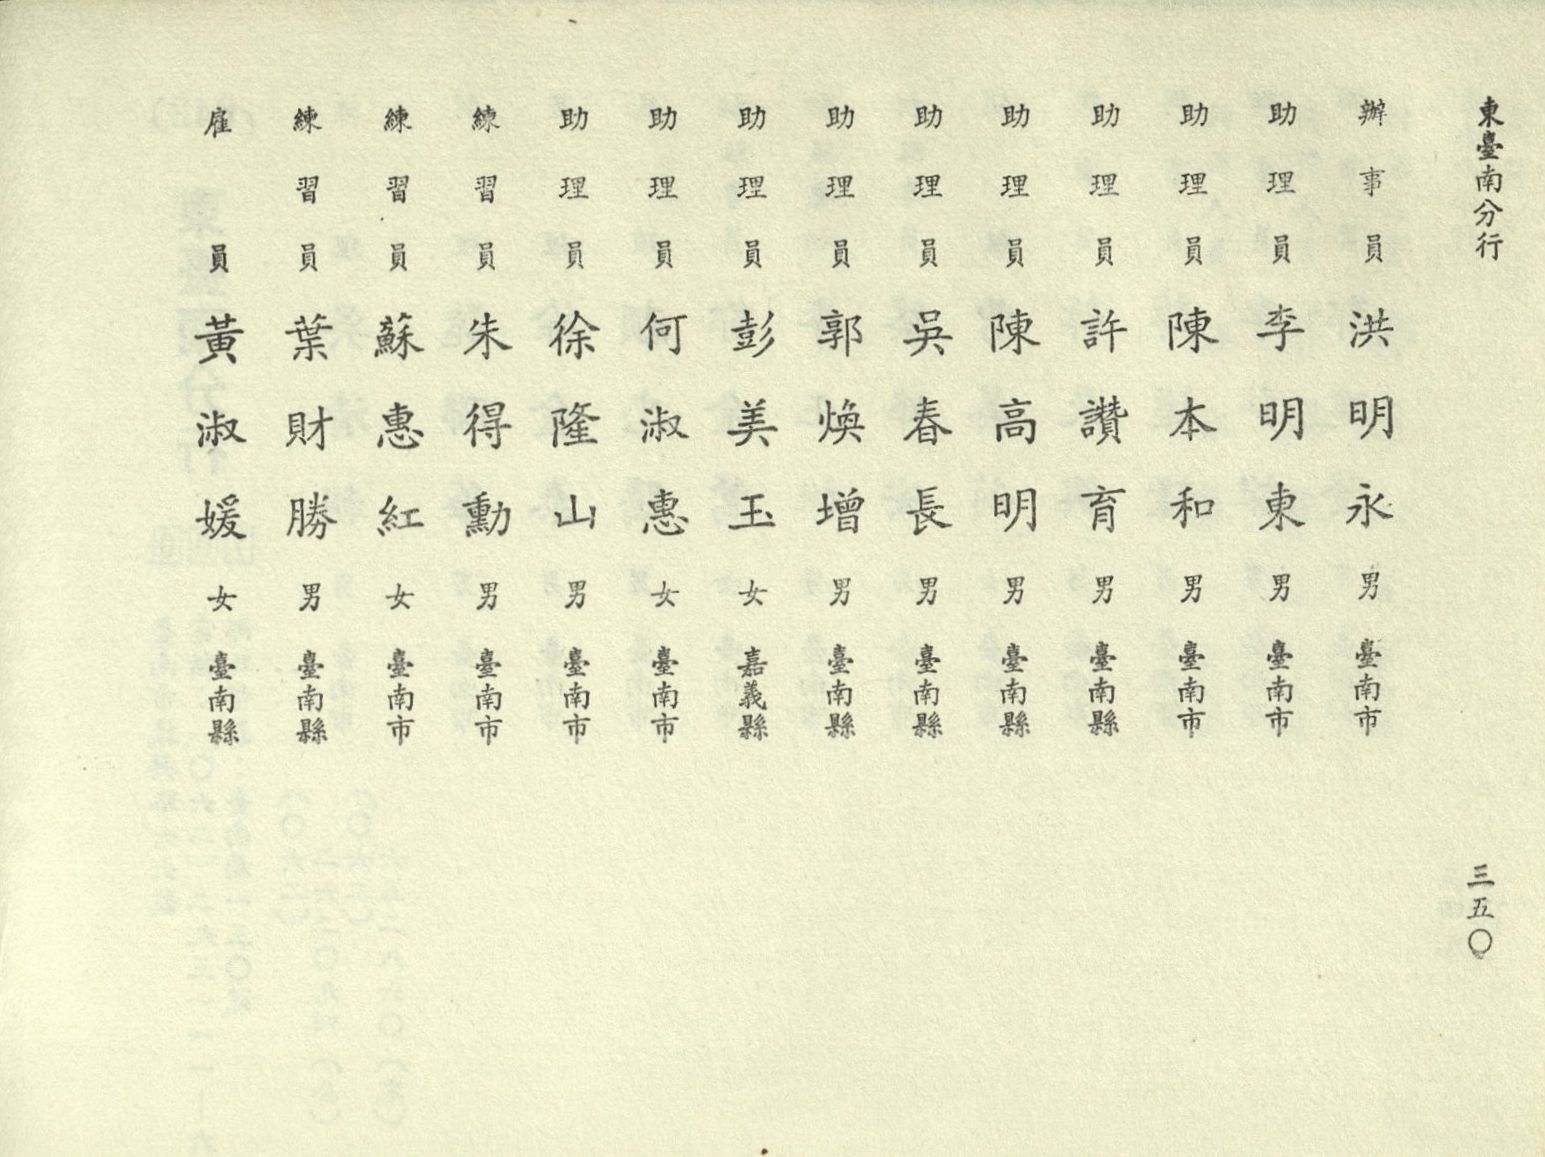 東臺南分行
三五〇
辦事員 洪明永 男 臺南市
助理員 李明東 男 臺南市
助理員 陳本和 男 臺南市
助理員 許讚育 男 臺南縣
助理員 陳高明 男 臺南縣
助理員 吳春長 男 臺南縣
助理員 郭煥增 男 臺南縣
助理員 彭美玉 女 嘉義縣
助理員 何淑惠 女 臺南市
助理員 徐隆山 男 臺南市
練習員 朱得勳 男 臺南市
練習員 蘇惠紅 女 臺南市
練習員 葉財勝 男 臺南縣
雇員 黃淑媛 女 臺南縣